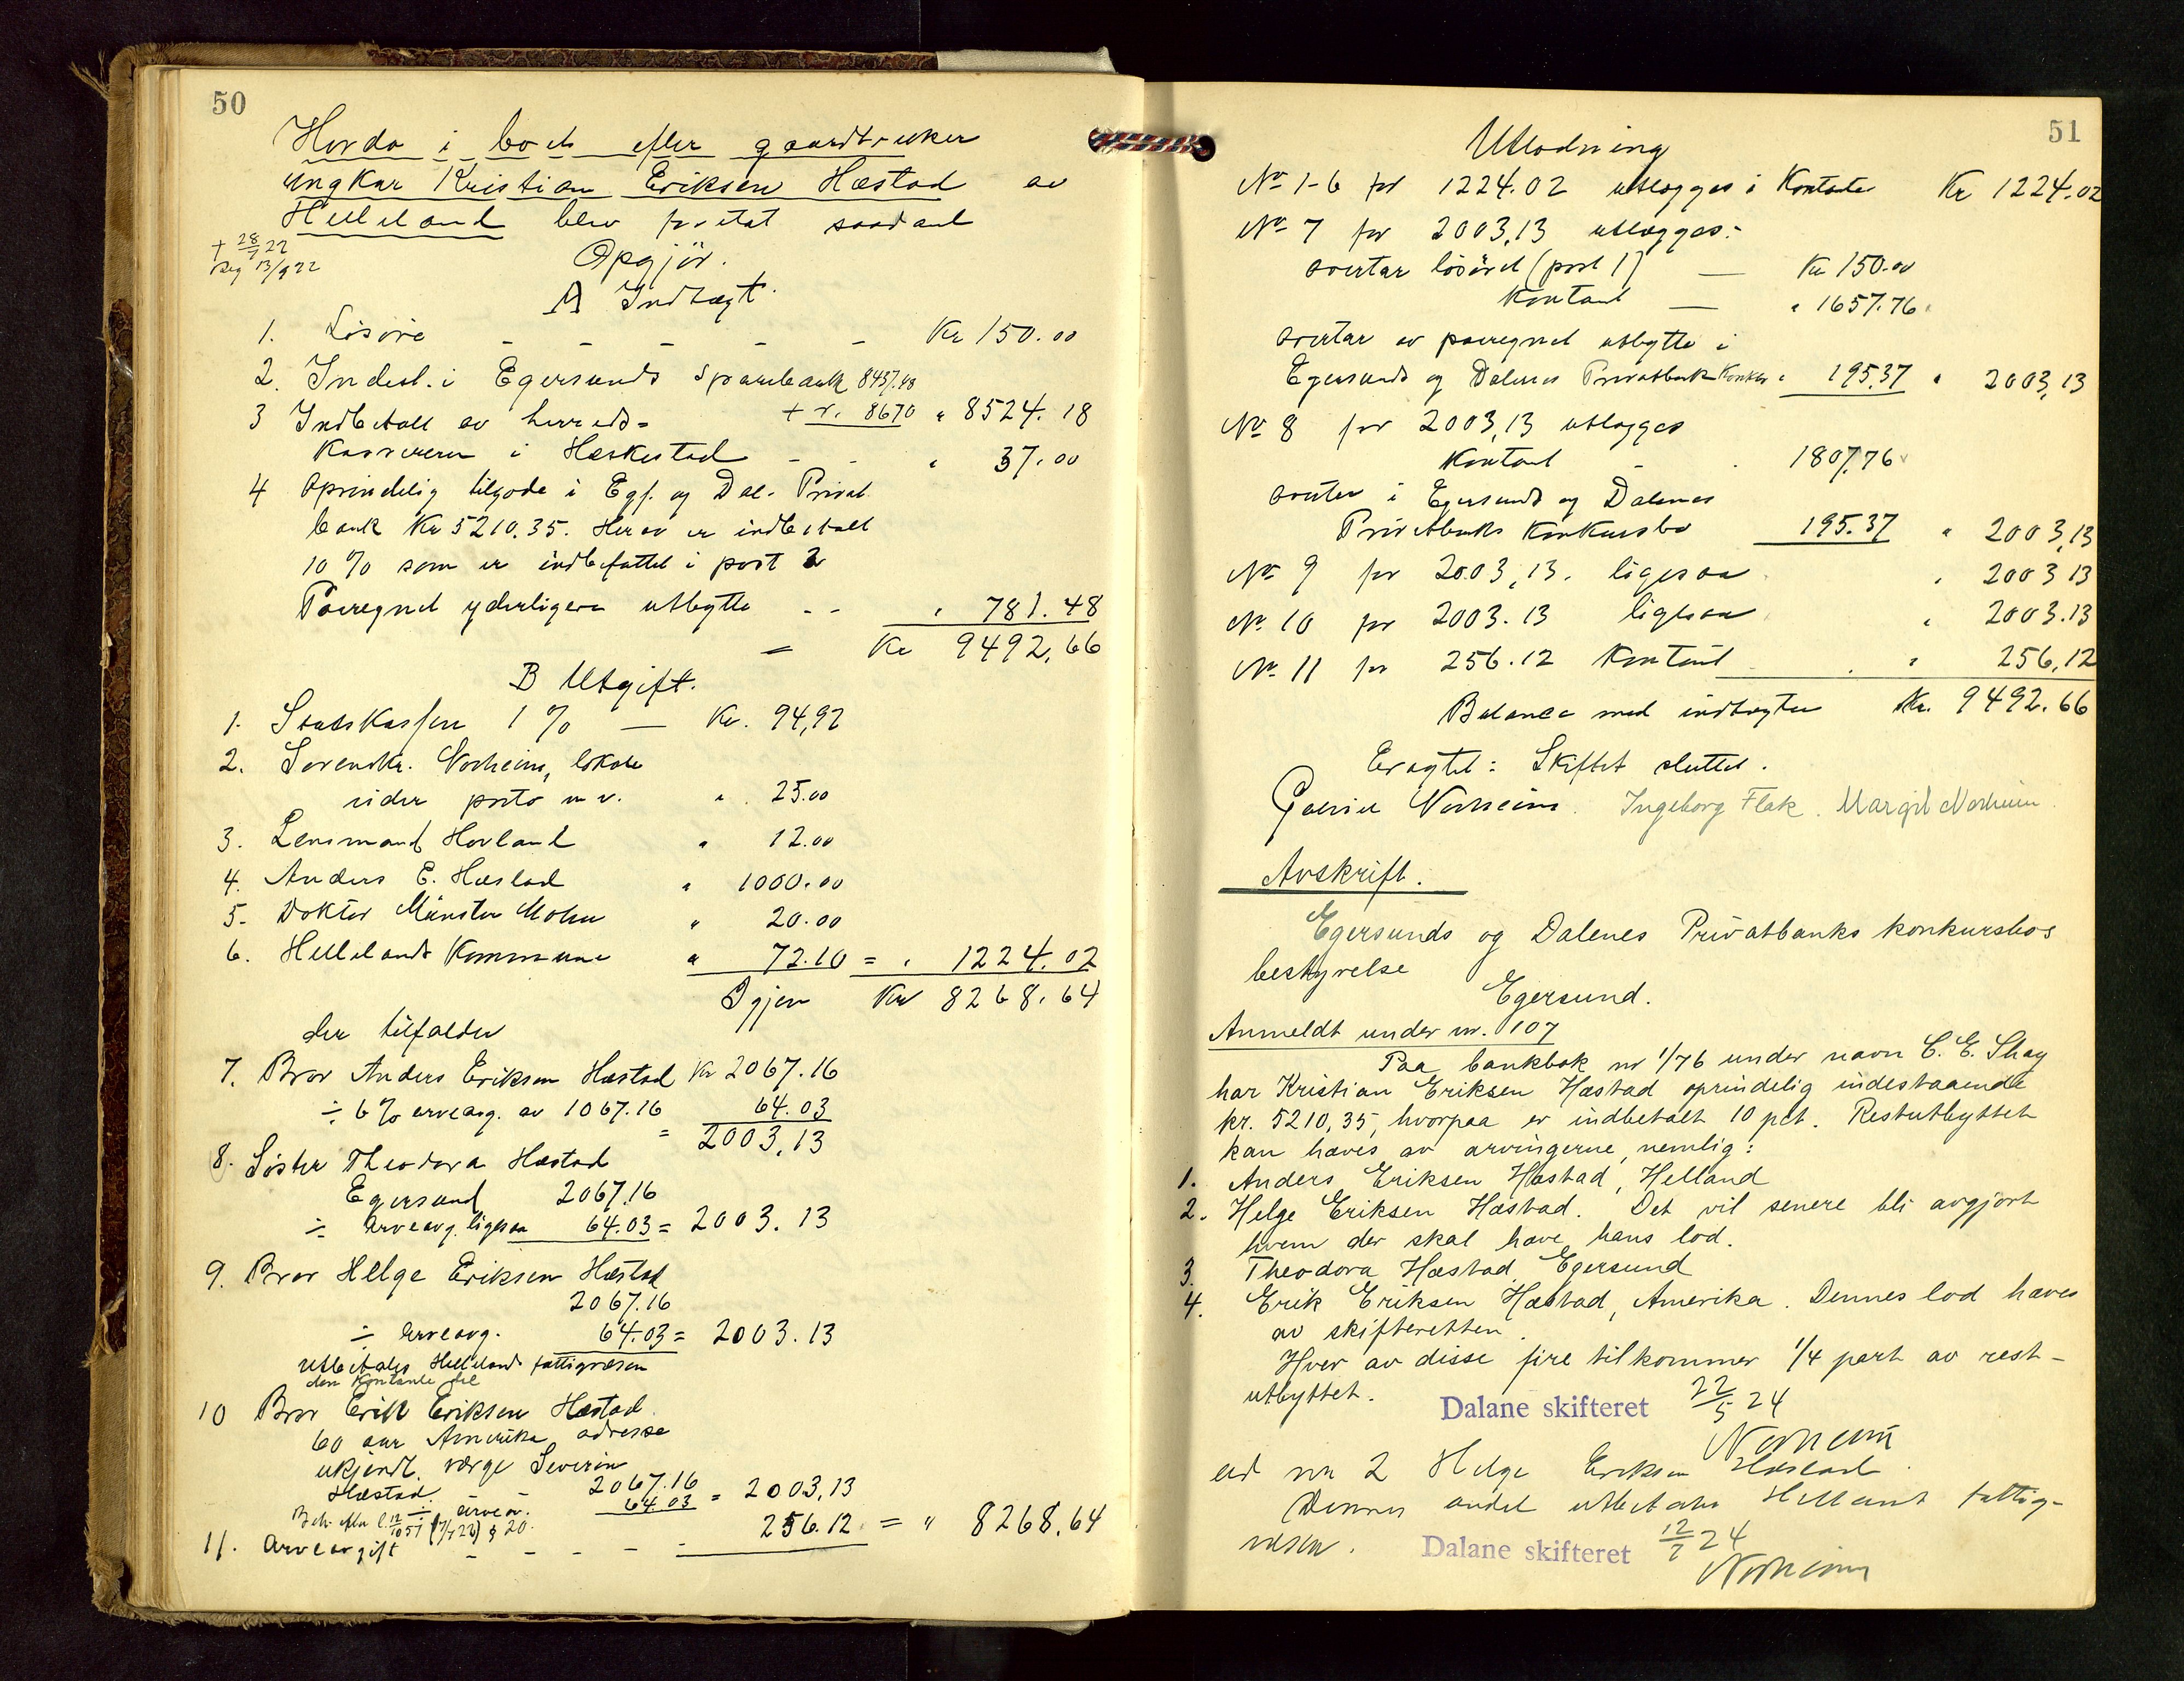 50
Hvorda i boet efter gaardbruker
ungkar Kristian Eriksen Hæstad av
Helleland blev foretat saadant
+ 28/7 22
Reg 13/9 22
Opgjör.
A Indtægt.
1. Lösöre - - - - - Kr 150.00
2. Indest. i Egersunds Sparebank 8437.48
+ r. 86.70 " 8524.18
3 Indbetalt av herreds-
kassereren i Heskestad - - " 37.00
4 Oprindelig tilgode i Egs. og Dal. Privat
bank Kr 5210.35. Herav er indbetalt
10 % som er indbefattet i post 2
Paaregnet yderligere utbytte - - " 781.48
= Kr 9492,66
B Utgift.
1. Statskassen 1 % — Kr. 94,92
2. Sorenskr. Norheim, lokale
rider porto m v. " 25.00
3. Lensmand Hovland " 12.00
4. Anders E. Hæstad " 1000.00
5. Doktor Münster Mohn " 20.00
6. Hellelands Kommune " 72.10 = " 1224.02
Igjen Kr 8268.64
der tilfalder
7. Bror Anders Eriksen Hæstad Kr 2067.16
÷ 6 % arveavg. av 1067.16 64.03
= 2003,13
8. Söster Theodora Hæstad
Egersund 2067.16
÷ Arveavg. ligesaa 64.03 = 2003.13
9. Bror Helge Eriksen Hæstad
2067.16
÷ Arveavg. 64.03 = 2003.13
Utbetales Hellelands fattigvæsen
den Kontante del
10 Bror Erik Eriksen Hæstad
60 aar Amerika, adresse
ukjendt. værge Severin
Hæstad. 2067.16
÷ arvea. 64.03 = 2003,13
11. Arveavgift - - - - - 256.12 = " 8268,64
51
Utlodning
No 1-6 for 1224.02 utlægges i Kontanter Kr 1224.02
No 7 for 2003,13 utlægges:
overtar lösöret (post 1) — Kr 150.00
Kontant — " 1657.76
overtar av paaregnet utbytte i
Egersunds og Dalenes Privatbanks Konkurs " 195.37 " 2003,13
No 8 for 2003,13 utlægges
Kontant - . 1807.76
overtar i Egersunds og Dalenes
Privatbanks Konkursbo 195.37 " 2003,13
No 9 for 2003,13. ligesaa " 2003 13
No 10 for 2003.13 ligesaa " 2003.13
No 11 for 256.12 Kontant " 256,12
Balance med indtægten Kr. 9492.66
Eragtet: Skiftet sluttet.
Norheim. Ingeborg Flak. Margit Norheim
Avskrift.
Egersunds og Dalenes Privatbanks konkursbos
bestyrelse
Egersund.
Anmeldt under nr. 107
Paa bankbok nr 1/76 under navn C. E. Skag
har Kristian Eriksen Hæstad oprindelig indestaaende
kr. 5210,35, hvorpaa er indbetalt 10 pct. Restutbyttet
kan hæves av arvingerne, nemlig:
1. Anders Eriksen Hæstad, Helland
2. Helge Eriksen Hæstad. Det vil senere bli avgjort
hvem der skal hæve hans lod.
3. Theodora Hæstad, Egersund
4. Erik Eriksen Hæstad, Amerika. Dennes lod hæves
av skifteretten.
Hver av disse fire tilkommer 1/4 part av rest-
utbyttet.
Dalane skifteret 22/5 24
Norheim
ad nr 2 Helge Eriksen Hæstad.
Dennes andel utbetales Helland fattig-
væsen. Dalane skifteret 12/7 24
Norheim